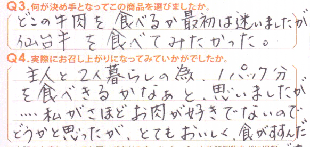 Q3.何が決め手となってこの商品を選びましたか。
どこの牛肉を食べるか最初は迷いましたが
仙台牛を食べてみたかった。
Q4.実際にお召し上がりになってみていかがでしたか。
主人と2人暮らしの為 1パック分
を食べきるかなぁと、思いましたが
....私がさほどお肉が好きでないので
どうかと思ったが、とてもおいしく、食がすすんだ